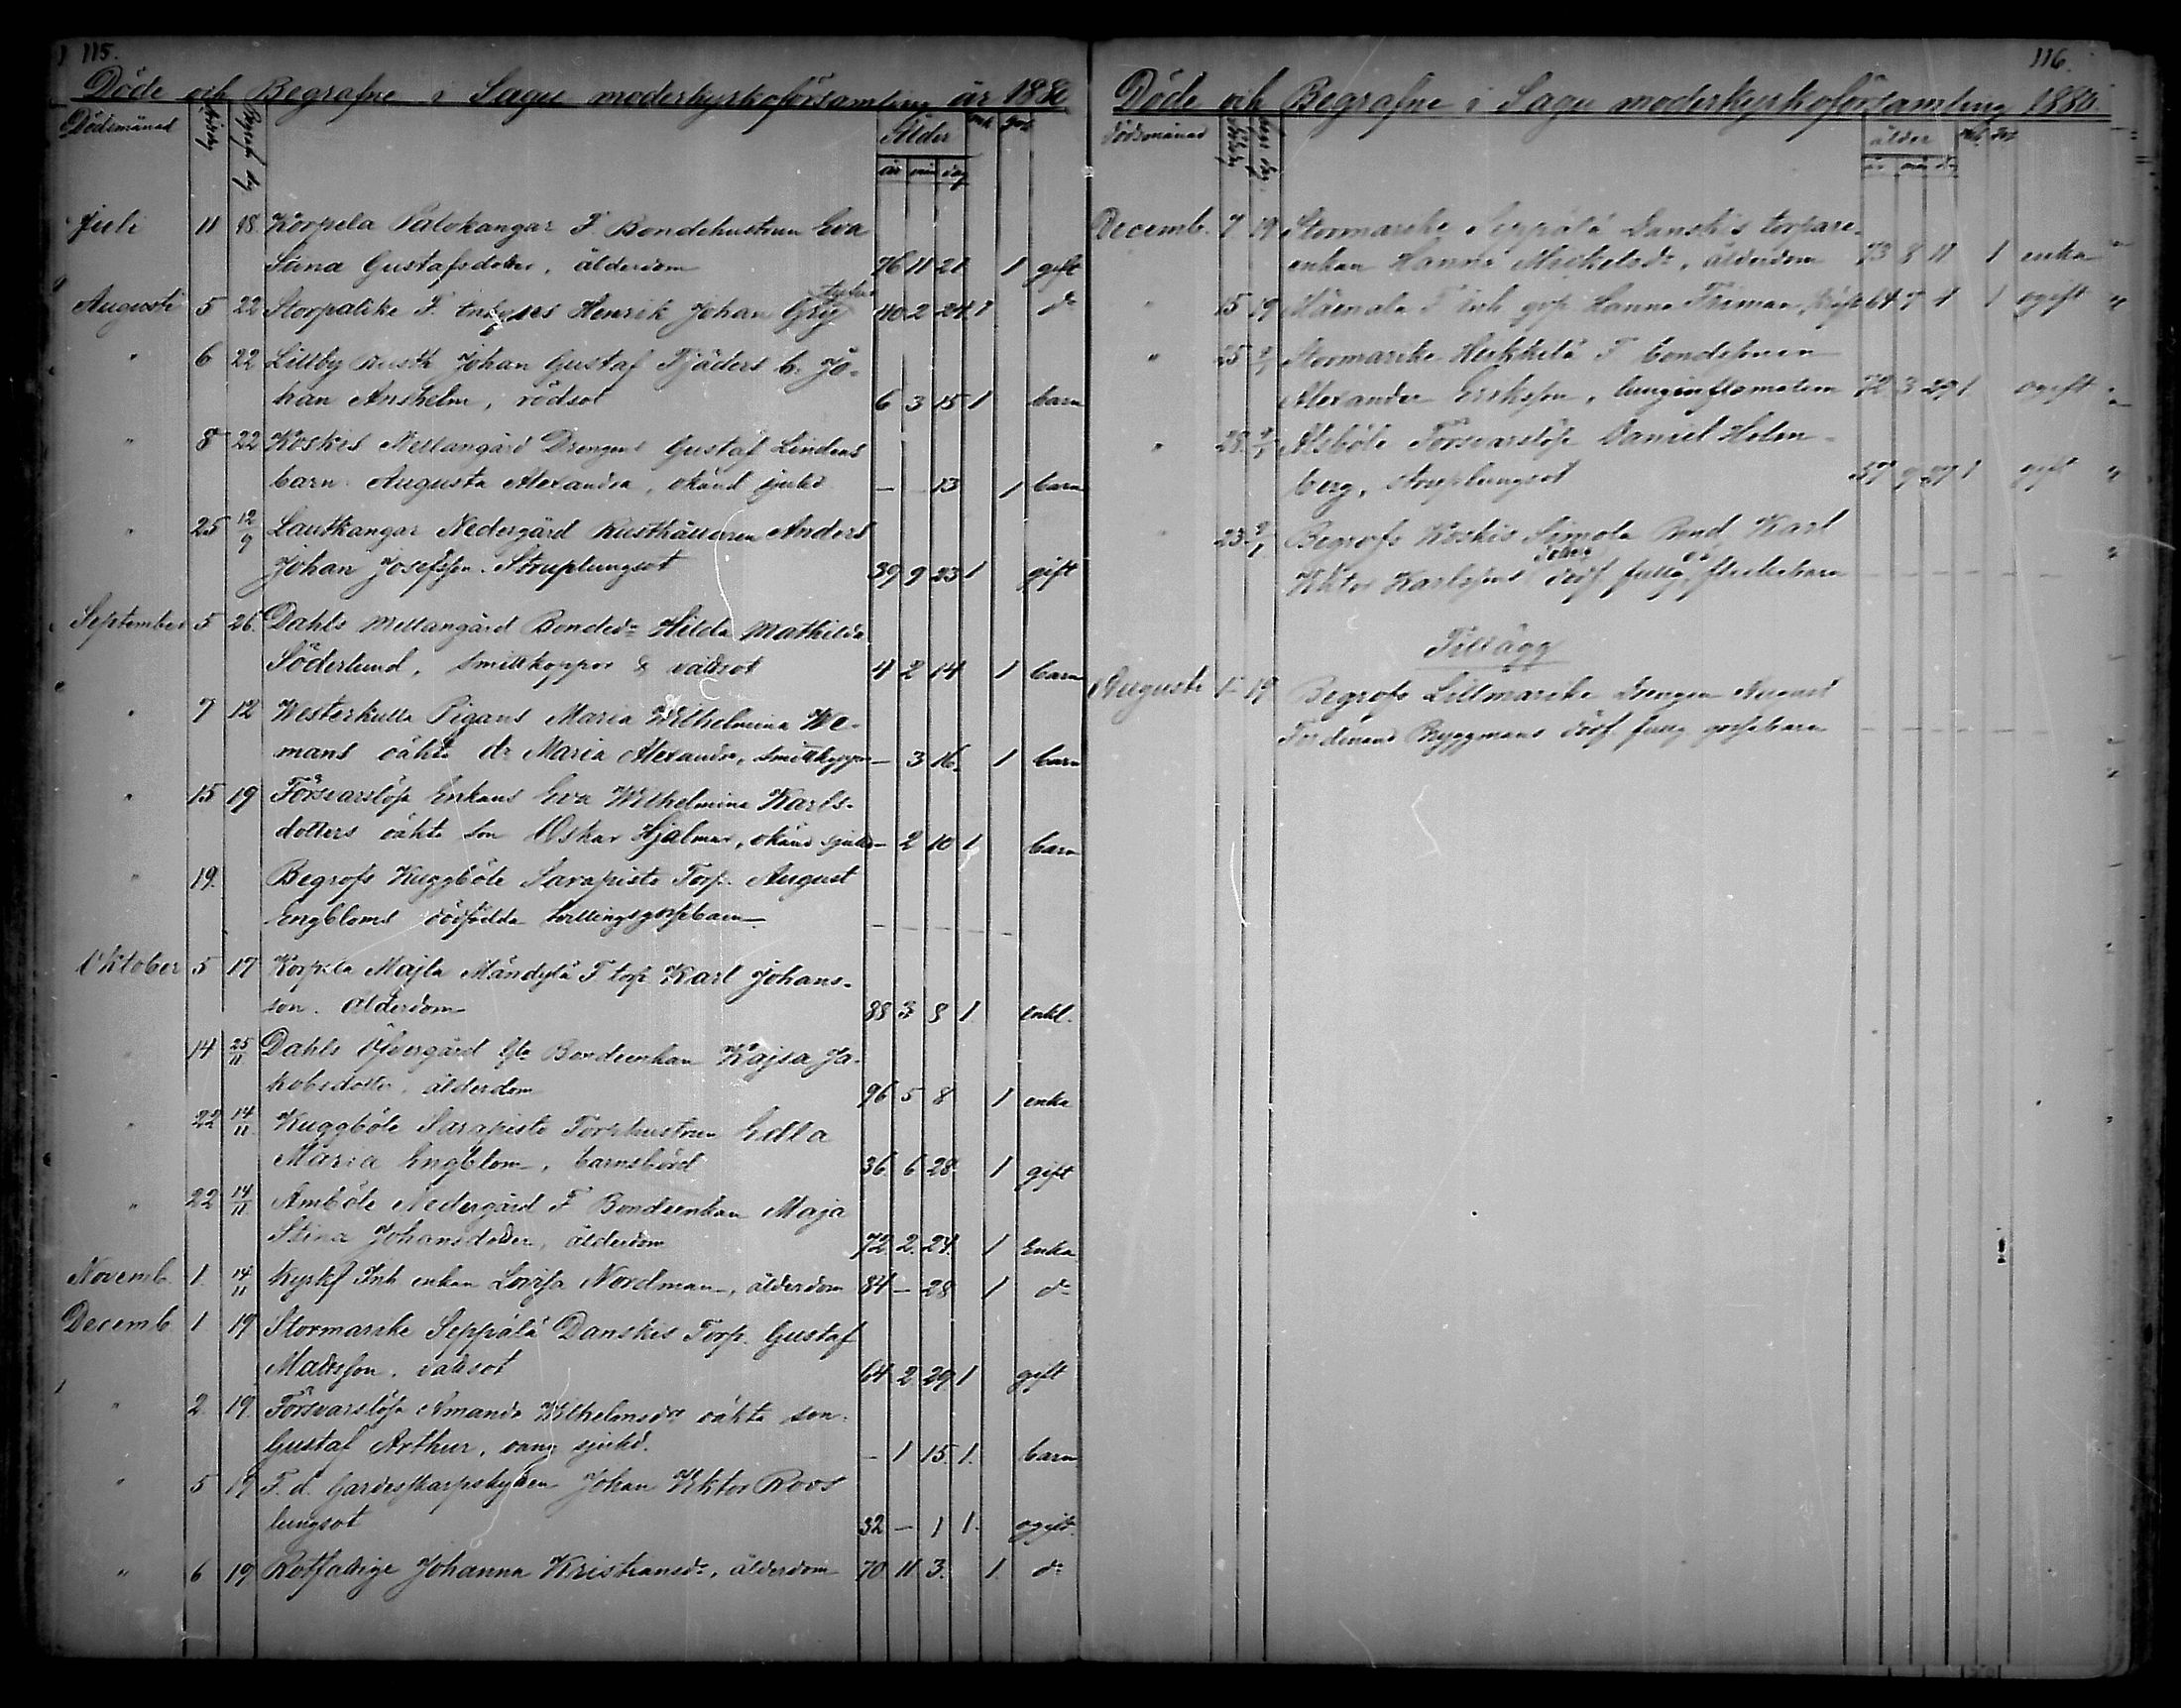 115.
Döde och Begrafne i Sagu moderkyrkoförsamling år 1880
Dödsmånad Begrafn. dag Ålder mk qvk
år mån dag
Juli 11 18. Korpela Palokangar F. Bondehustrun Eva
Stina Gustafsdotter, ålderdom 76 11 21 1 gift
Augusti 5 22 Storpatike F. Henrik Johan 40 2 24 1 do
" 6 22 Lillby Rusth Johan Gustaf Tjäders b. Jo-
han Anshelm, rödsot 6 3 15 1 barn
" 8 22 Koskis Mellangård Drengens Gustaf Lindens
barn Augusta Alexandra, okänd sjukd — — 13 1 barn
" 25 12/9 Lautkangar Nedergård Rusthållaren Anders
Johan Josefsson. Struplungsot 39 9 23 1 gift
September 5 26. Dahls Mellangård Bondedr Hilda Mathilda
Söderlund, smittkoppor & vattsot 4 2 14 1 barn
" 7 12 Westerkulla Pigans Maria Wilhelmina We-
mans oäkta dr Maria Alexandra, smittkoppor — 3 16. 1 barn
" 15 19 Försvarslösa Enkans Eva Wilhelmina Karls-
dotters oäkta son Oskar Hjalmar, okänd sjukd — 2 10 1 barn
" 19. Begrofs Kuggböle Sarapisto Torp. August
Engbloms dödfödda tvillingsgossebarn — — — — —
Oktober 5 17 Korpela Majla Mändylä F torp Karl Johans-
son. ålderdom 88 3 8 1. enkl.
" 14 25/11 Dahls Öfvergård Gla Bondeenkan Kajsa Ja-
kobsdotter, ålderdom 96 5 8 1 enka
" 22 14/11 Kuggböle Sarapisto Torphustrun Edla
Maria Engblom, barnsbörd 36 6 28 1 gift
" 22 14/11 Amböle Nedergård F Bondeenkan Maja
Stina Johansdotter, ålderdom 72 2. 24. 1 Enka
Novemb. 1. 14/11 Kyrkf Inh enkan Lovisa Nordman, ålderdom 84 — 28 1 do
Decemb 1 19 Stormarke Seppälä Danskis Torp. Gustaf
Mattsson. vattsot 64 2. 29 1 gift
" 2. 19. Försvarslösa Amanda Wilhelmsdr oäkta son
Gustaf Arthur, sjukd. — 1 15. 1. barn
" 5 19 F. d. Gardesskarpskytten Johan Viktor Roos
lungsot 32 — 1 1. ogift.
" 6 19 Rotfattige Johanna Kristiansdr, ålderdom 70 11 3. 1. do
116.
Döde och Begrafne i Sagu moderkyrkoförsamling 1880.
dödsmånad ålder
år mån dag
Decemb. 7 19 Stormarke Seppälä Danskis torpare-
enkan Hanna Mickelsdr, ålderdom 73 8 11 1 enka
" 15 19 F inh Hanna 64 7 1 1 ogift
" 25 Stormarke Heikkilä F bondsonen
Alexander Eriksson, lunginflamation 72 3 29 1 ogift
" 28. Alsböle Försvarslöse Daniel Holm-
berg, struplungsot 57 9 27 1 gift
" 23. Begrofs Koskis Simola Bond Karl
Viktor Karlssons dödf. flickebarn — — — — —
Tillägg
Augusti 1 19 Begrofs Lillmarike drengen August
Ferdinand Byggmans dödf. gossebarn — — — — —